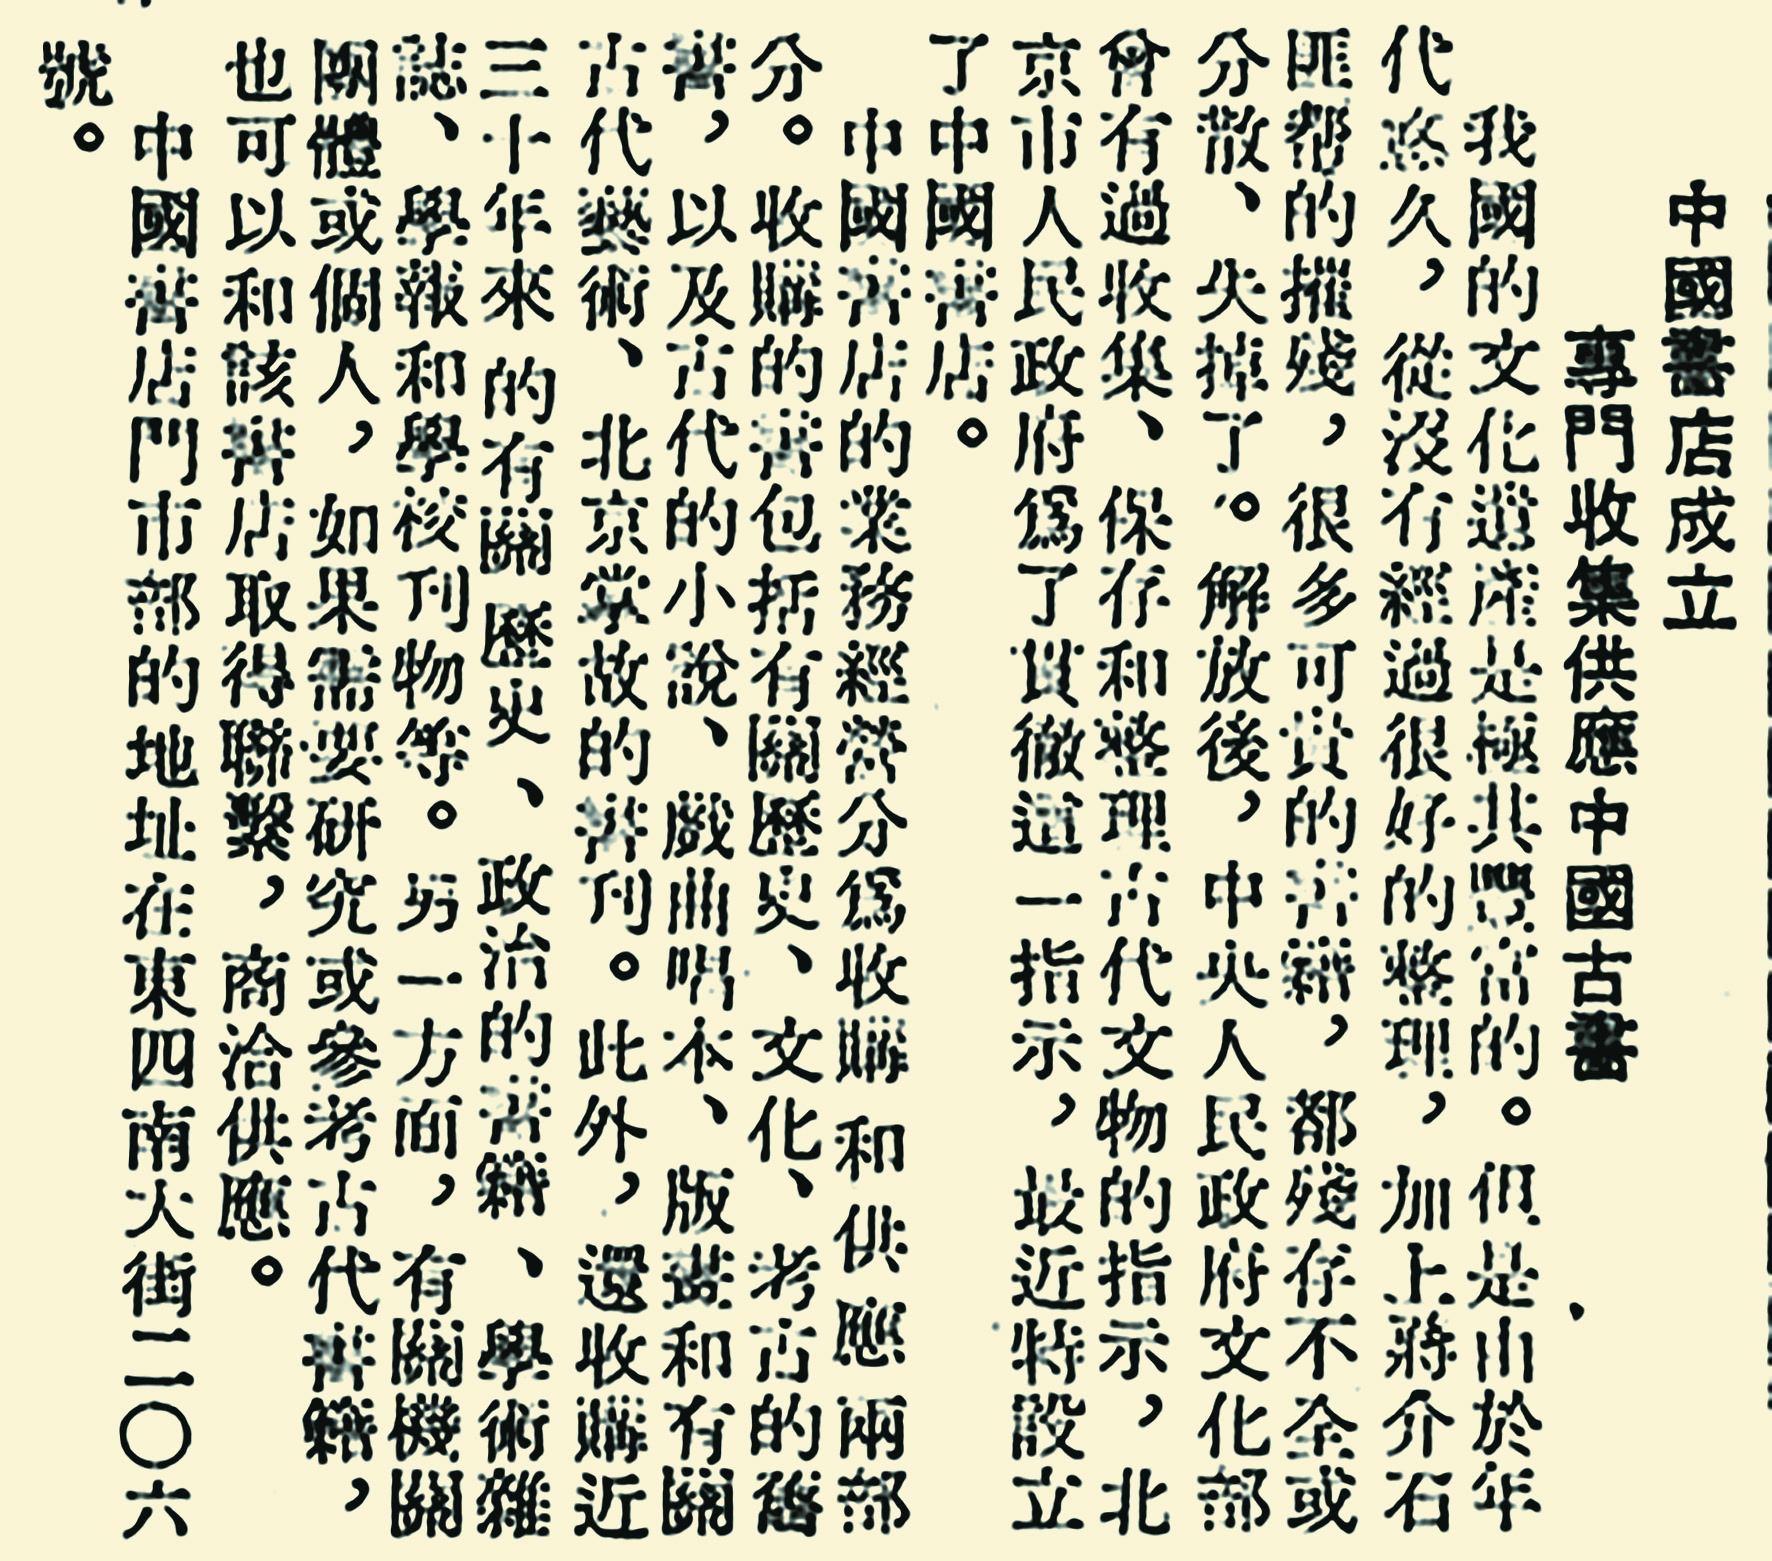 中國書店成立
專門收集供應中國古書
我國的文化遺產是極其豐富的。但是由於年
代悠久，從沒有經過很好的整理，加上蔣介石
匪幫的摧殘，很多可貴的古籍，都殘存不全或
分散、失掉了。解放後，中央人民政府文化部
曾有過收集、保存和整理古代文物的指示，北
京市人民政府爲了貫徹這一指示，最近特設立
了中國書店。
中國書店的業務經營分爲收購和供應兩部
分。收購的書包括有關歷史、文化、考古的舊
書，以及古代的小說、戲曲唱本、版畫和有關
古代藝術、北京掌故的書刊。此外，還收購近
三十年來的有關歷史、政治的書籍、學術雜
誌、學報和學校刊物等。另一方面，有關機關
團體或個人，如果需要研究或參考古代書籍，
也可以和該書店取得聯繫，商洽供應。
中國書店門市部的地址在東四南大街二〇六
號。